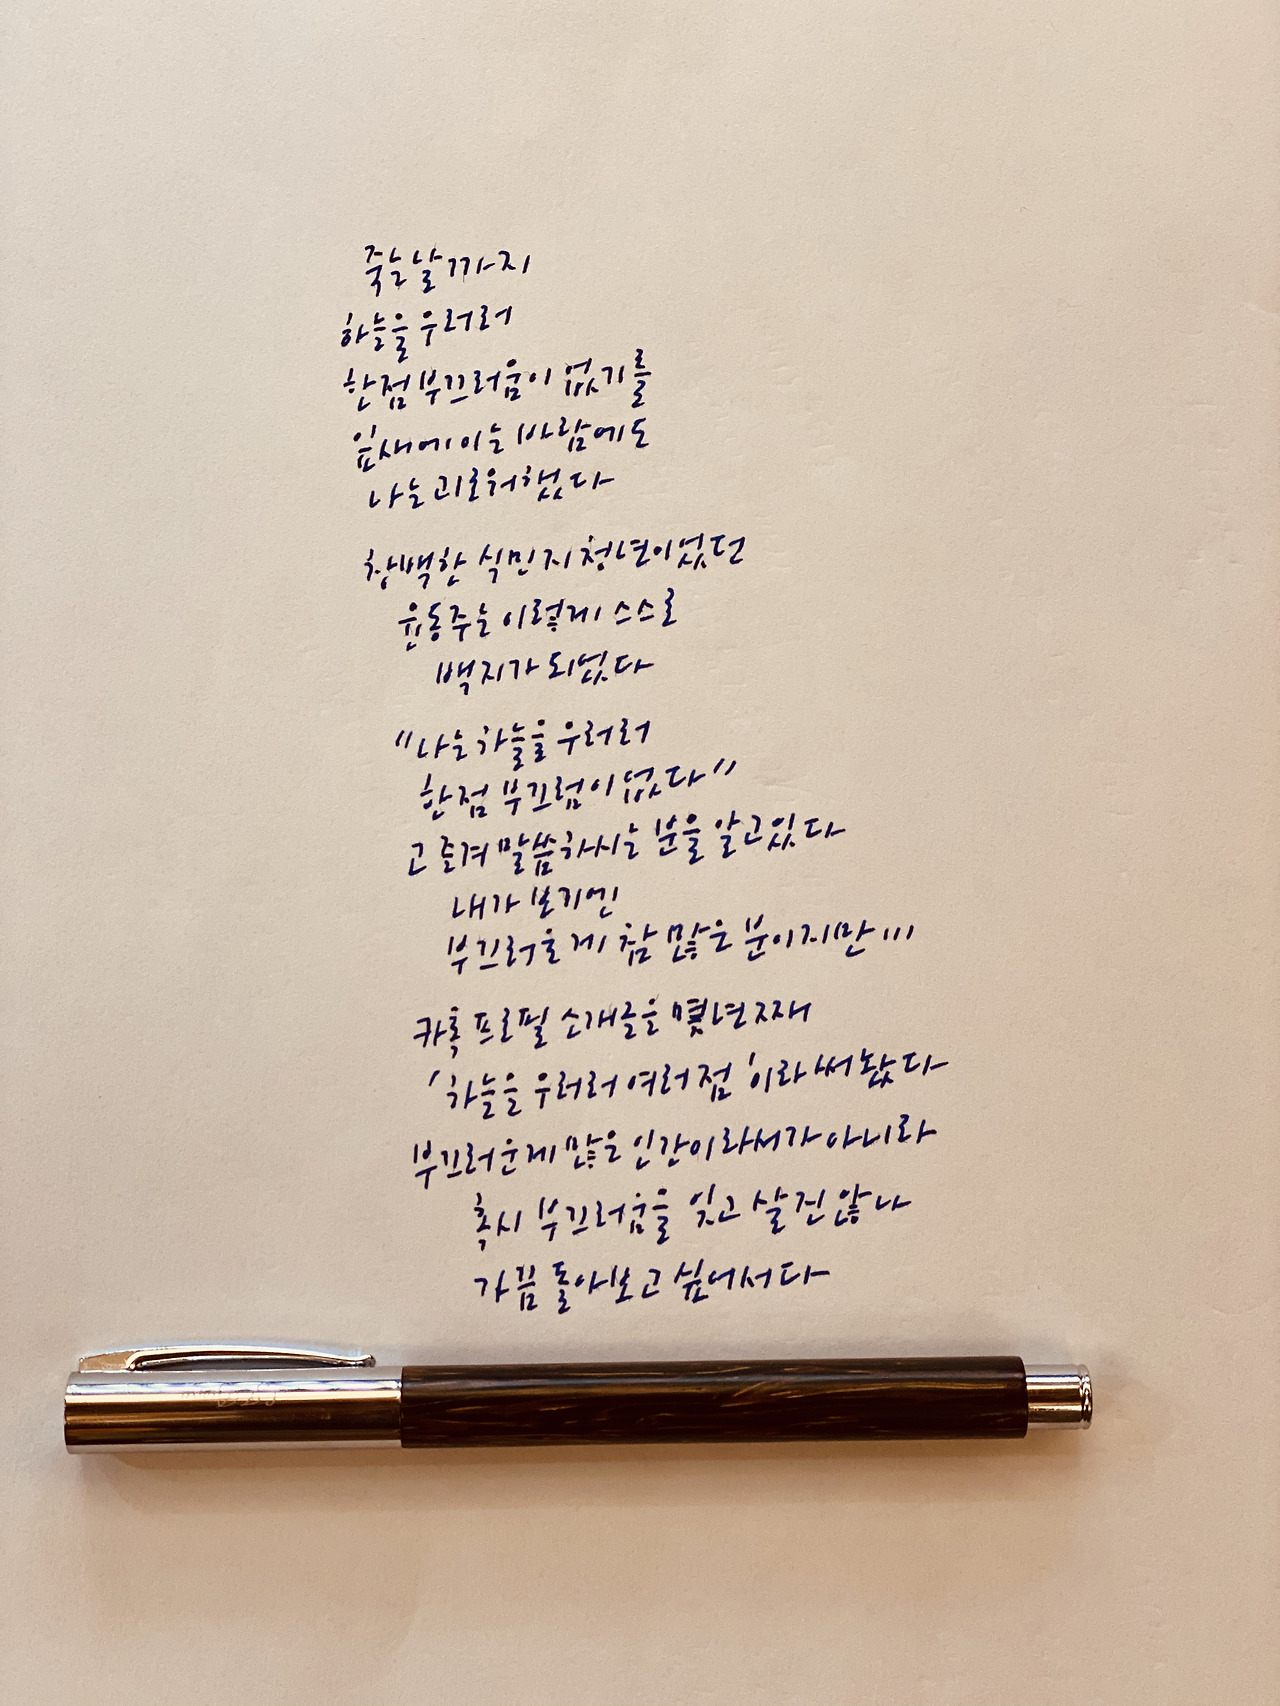 죽는 날까지
하늘을 우러러
한점 부끄러움이 없기를
잎새에 이는 바람에도
나는 괴로워했다
창백한 식민지 청년이었던
윤동주는 이렇게 스스로
백지가 되었다
"나는 하늘을 우러러
한점 부끄럼이 없다"
고 즐겨 말씀하시는 분을 알고있다
내가 보기엔
부끄러울게 참 많은 분이지만...
카톡 프로필 소개글을 몇년째
'하늘을 우러러 여러점'이라 써놨다
부끄러운게 많은 인간이라서가 아니라
혹시 부끄러움을 잊고 살진 않나
가끔 돌아보고 싶어서다